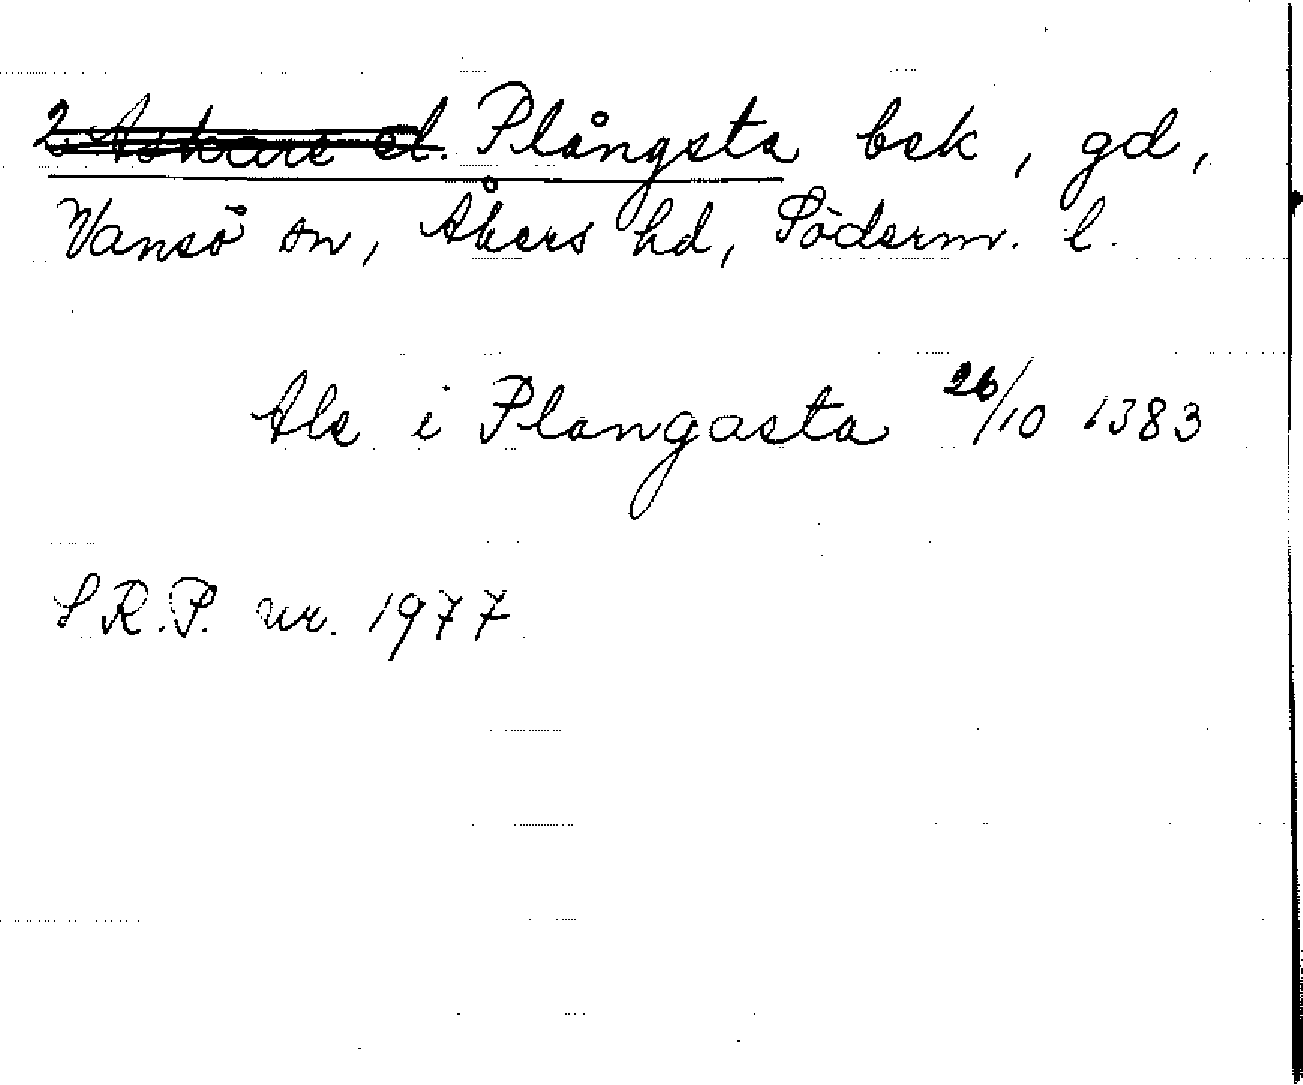 Plångsta bek, gd,
Vansö sn, Åkers hd, Söderm. l.
Ale i Plangasta 26/10 1383
SR.P. nr. 1977